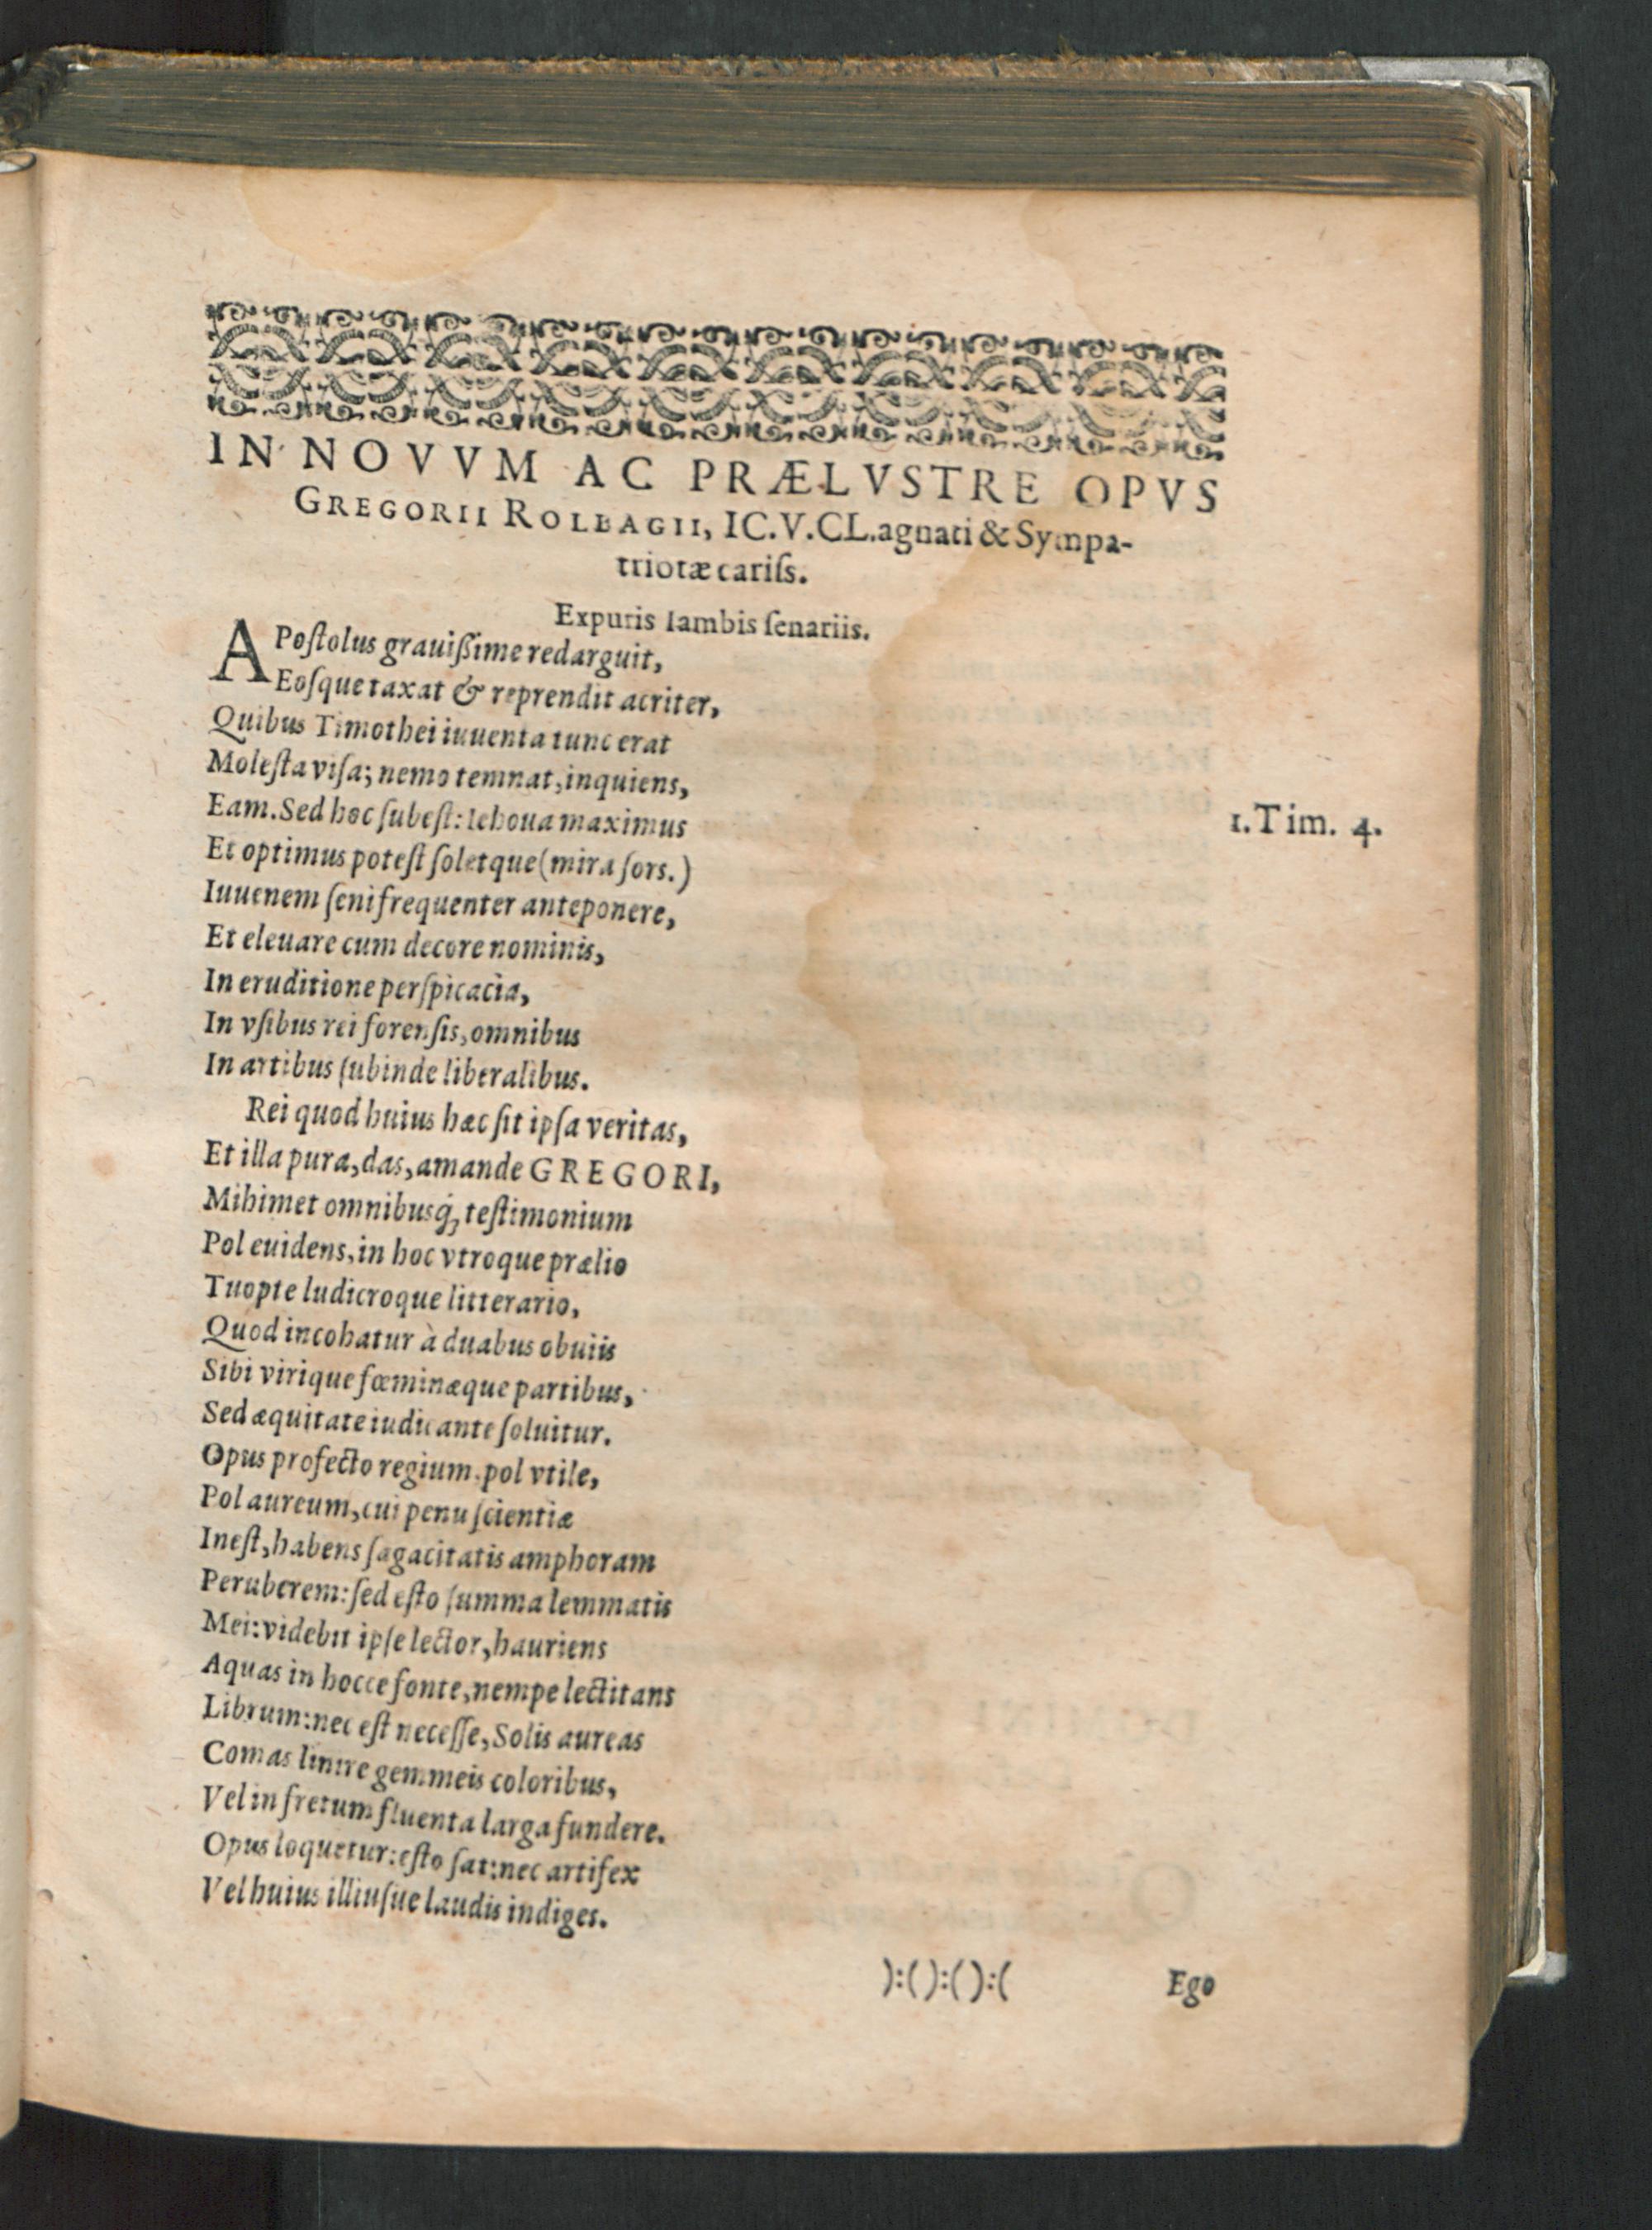 IN NOVVM AC PRÆLVSTRE OPVS
GREGORII ROLBAGII, IC. V. CL. agnati & Sympa-
triotæ cariſs.
Ex puris Iambis ſenariis.
APoſtolus grauißime redarguit,
Eoſque taxat & reprendit acriter,
Quibus Timothei iuuenta tunc erat
Moleſta viſa; nemo temnat, inquiens,
Eam. Sed hoc ſubeſt: Iehoua maximus
1. Tim. 4.
Et optimus poteſt ſoletque (mira ſors.)
Iuuenem ſeni frequenter anteponere,
Et eleuare cum decore nominis,
In eruditione perſpicaciâ,
In vſibus rei forenſis, omnibus
In artibus ſubinde liberalibus.
Rei quod huius hæc ſit ipſa veritas,
Et illa pura, das, amande GREGORI,
Mihimet omnibusq́; teſtimonium
Pol euidens, in hoc vtroque prælio
Tuopte ludicroque litterario,
Quod incohatur à duabus obuiis
Sibi virique fœminæque partibus,
Sed æquitate iudicante ſoluitur.
Opus profecto regium. pol vtile,
Pol aureum, cui penu ſcientiæ
Ineſt, habens ſagacitatis amphoram
Peruberem: ſed eſto ſumma lemmatis
Mei: videbit ipſe lector, hauriens
Aquas in hocce fonte, nempe lectitans
Librum: nec eſt neceſſe, Solis aureas
Comas linire gemmeis coloribus,
Vel in fretum fluenta larga fundere.
Opus loquetur: eſto ſat: nec artifex
Vel huius illiuſue laudis indiges.
):( ):( ):(
Ego